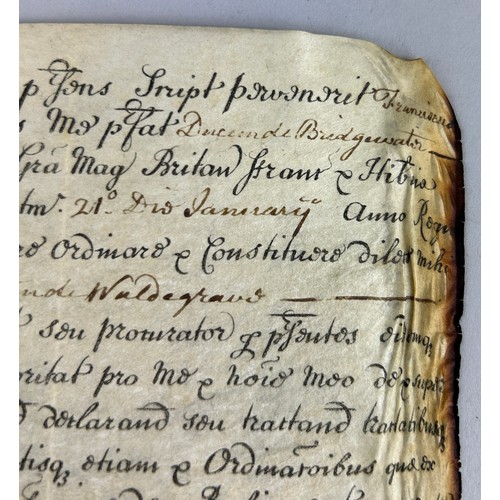 p̃sens Script pervenerit Franciscus
s Me p̃fat Ducem de Bridgewater
Gra͠ Mag Britan Franc & Hib͠no
tm̃. 21º Die Januarÿ Anno Regni
re Ordinare & Constituere dilect mihi
m de Waldegrave
t seu Procurator p p̃sentes eidemq;
oritat pro Me & no͠ie Meo de & super
d declarand seu tractand tractatibusq;
tisq; etiam & Ordina͠toibus quæ ex